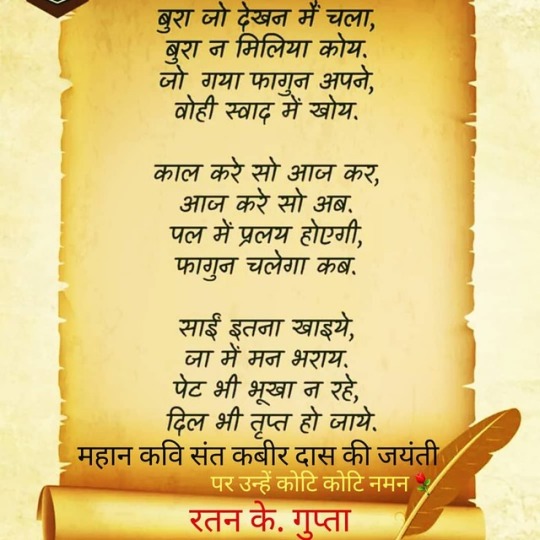 बुरा जो देखन मैं चला,
बुरा न मिलिया कोय.
जो गया फागुन अपने,
वोही स्वाद में खोय.
काल करे सो आज कर,
आज करे सो अब.
पल में प्रलय होएगी,
फागुन चलेगा कब.
साईं इतना खाइये,
जा में मन भराय.
पेट भी भूखा न रहे,
दिल भी तृप्त हो जाये.
महान कवि संत कबीर दास की जयंती
पर उन्हें कोटि कोटि नमन
रतन के. गुप्ता